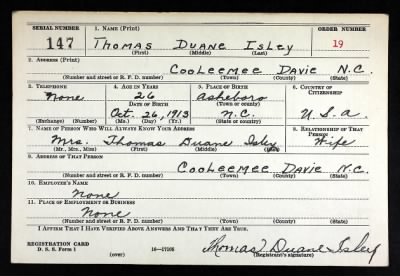 SERIAL NUMBER 1. NAME (Print) ORDER NUMBER
147 THOMAS DUANE ISLEY 19
(First) (Middle) (Last)
2. ADDRESS (Print)
COOLEEMEE DAVIE N.C.
(Number and street or R. F. D. number) (Town) (County) (State)
3. TELEPHONE 4. AGE IN YEARS 5. PLACE OF BIRTH 6. COUNTRY OF CITIZENSHIP
None 26 Asheboro
DATE OF BIRTH (Town or county)
Oct. 26, 1913 N.C. U.S.A.
(Exchange) (Number) (Mo.) (Day) (Yr.) (State or country)
7. NAME OF PERSON WHO WILL ALWAYS KNOW YOUR ADDRESS 8. RELATIONSHIP OF THAT PERSON
Mrs. Thomas Duane Isley Wife
(Mr., Mrs., Miss) (First) (Middle) (Last)
9. ADDRESS OF THAT PERSON
COOLEEMEE DAVIE N.C.
(Number and street or R. F. D. number) (Town) (County) (State)
10. EMPLOYER'S NAME
None
11. PLACE OF EMPLOYMENT OR BUSINESS
None
(Number and street or R. F. D. number) (Town) (County) (State)
I AFFIRM THAT I HAVE VERIFIED ABOVE ANSWERS AND THAT THEY ARE TRUE.
REGISTRATION CARD
D. S. S. Form 1 16—17105 Thomas Duane Isley
(over) (Registrant's signature)